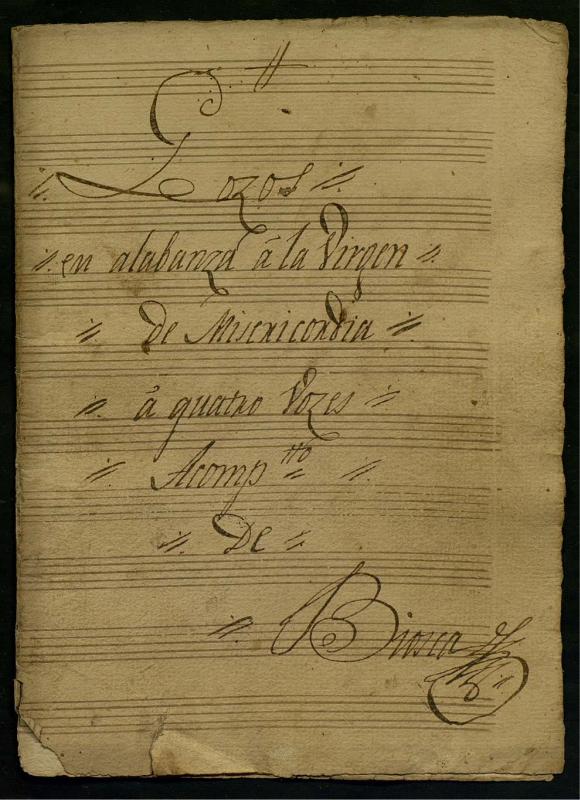 Gozos
en alabanza â la Virgen
De Misericordia
â quatro Vozes
Acomp.tto
De
Biosca